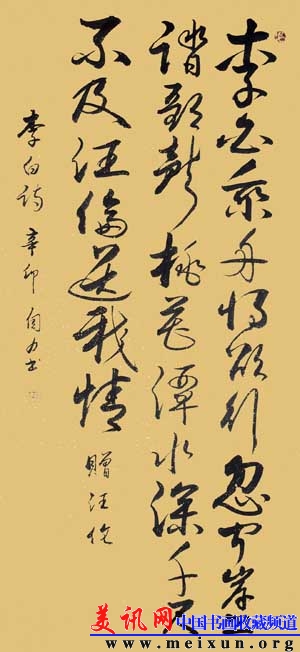 李白乘舟将欲行忽闻岸上
踏歌声桃花潭水深千尺
不及汪伦送我情
赠汪伦
李白诗 辛卯 自力书
美讯网 中国书画收藏频道
www.meixun.org